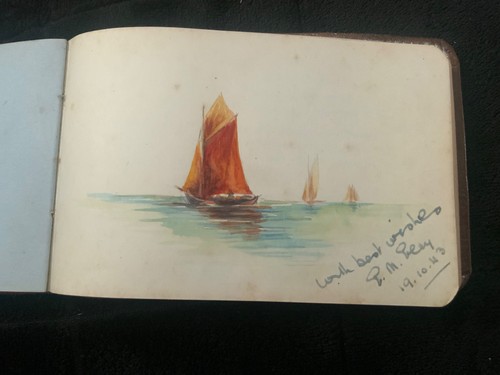 with best wishes
E. M.
19.10.43